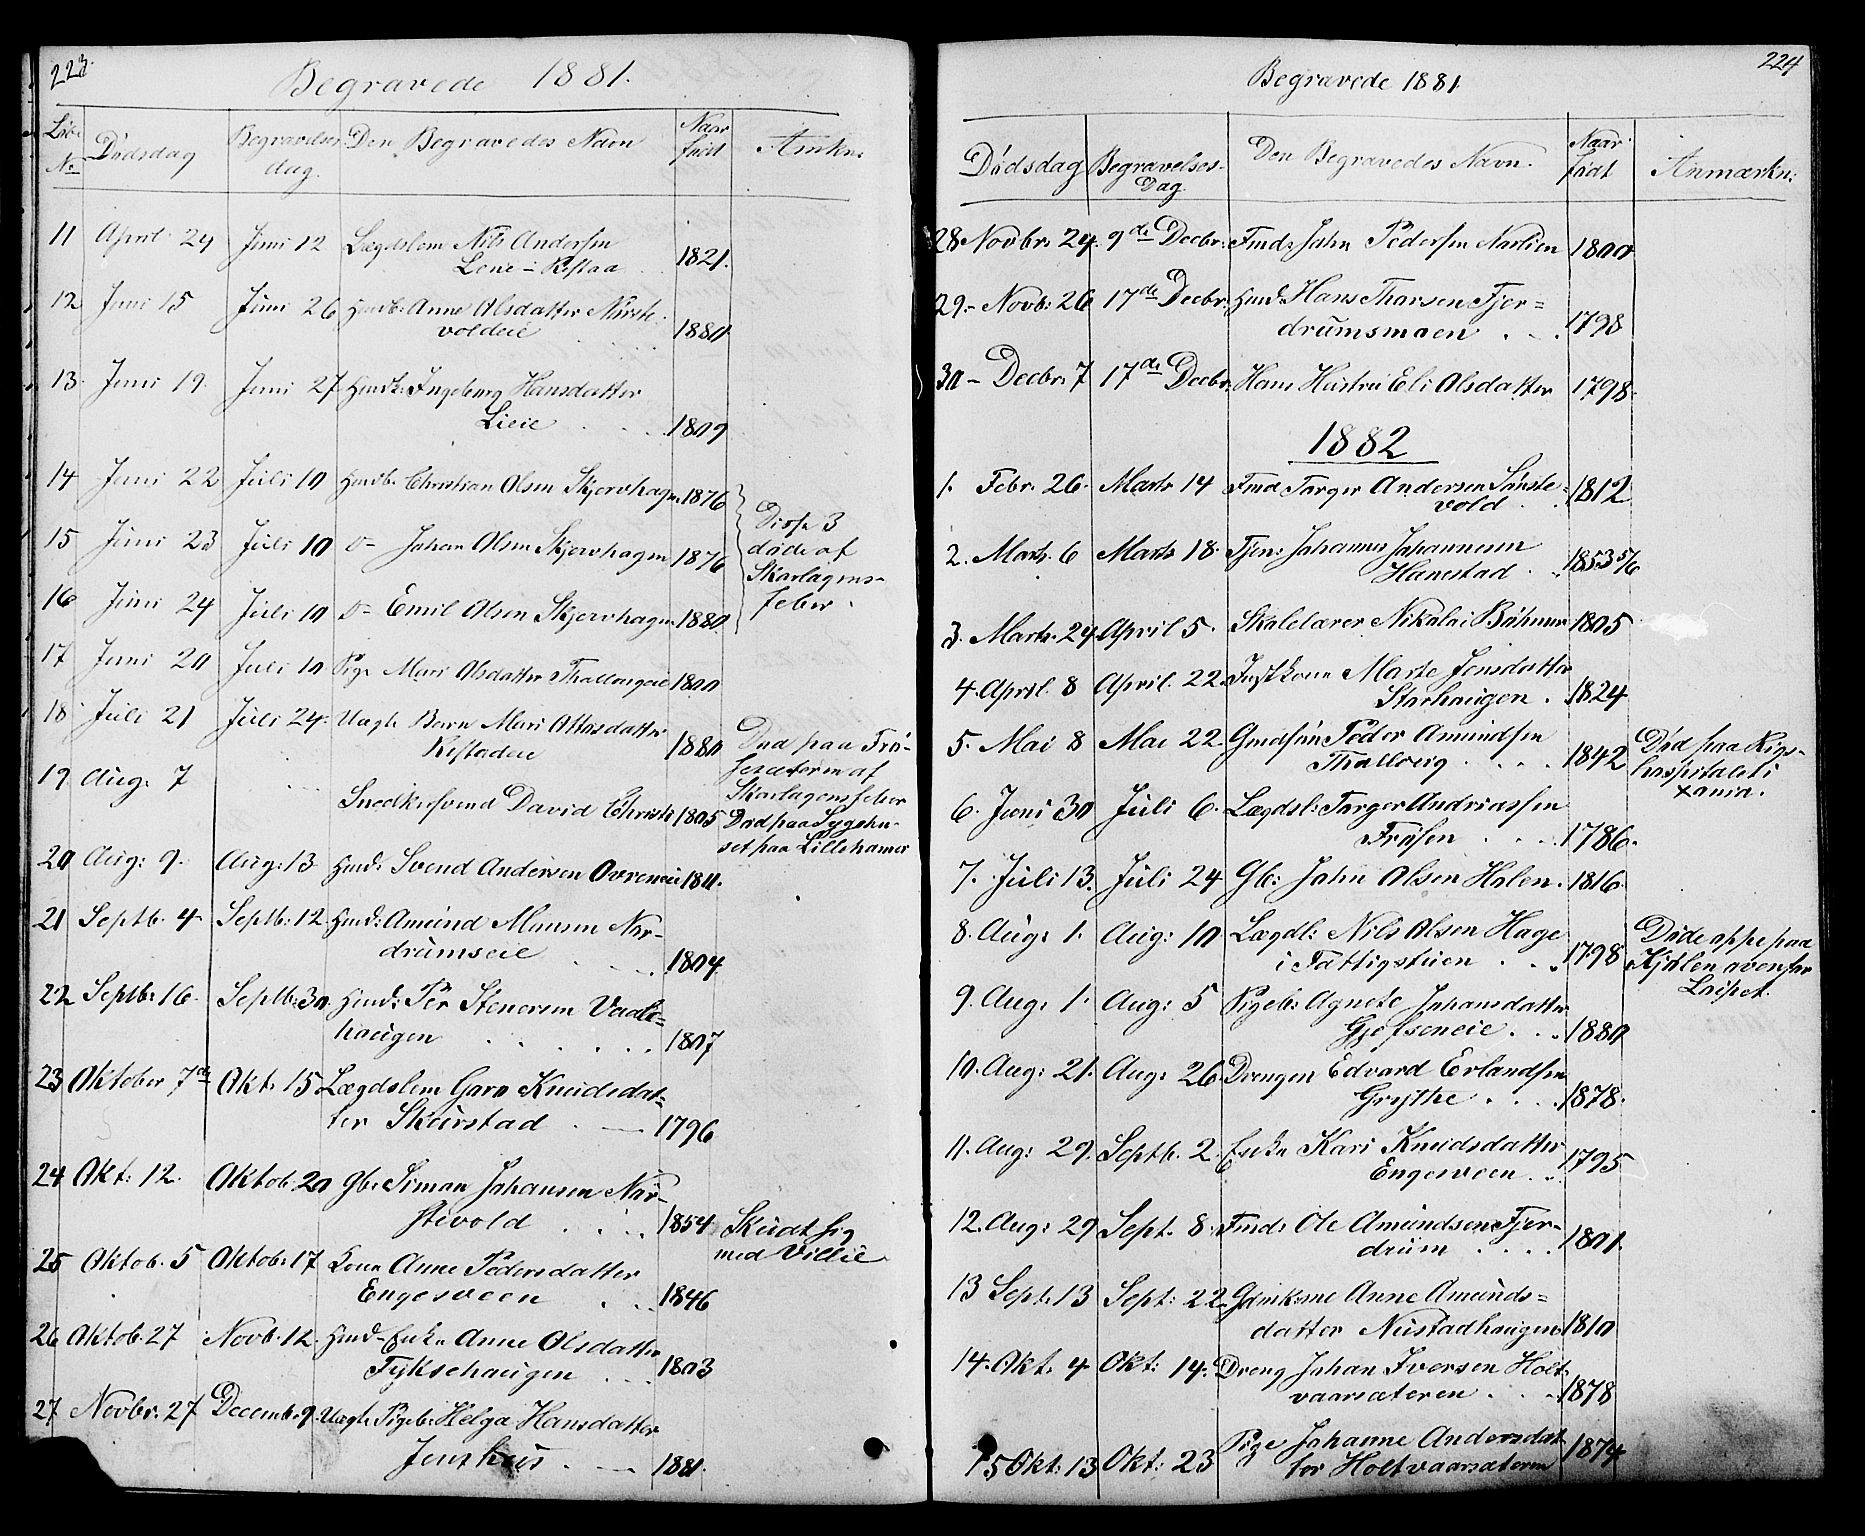 223.
Begravede 1881.
Løb. No Dødsdag Begravelses dag. Den Begravedes Navn Naar født Anmkn:
11 April 24 Juni 12 Lægdslem Nils Andersen
Lene i 1821.
12 Juni 15 Juni 26 Husmb: Anne Olsdatter
voldeie 1880
13. Juni 19. Juni 27 Husmk: Ingeborg Hansdatter
Lieie 1809
14 Juni 22 Juli 10 Husmb. Christian Olsen Skjervhagen 1876
15 Juni 23 Juli 10 D= Johan Olsen Skjervhagen 1876
Disse 3
døde af
Skarlagens-
feber.
16 Juni 24 Juli 10 D= Emil Olsen Skjervhagen 1880
17 Juni 20 Juli 10 Pige Mari Olsdatter 1800
18 Juli 21 Juli 24. Uægte Barn Mari Ottosdatter
1880
Død paa Frø-
sæteren af
Skarlagensfeber
19 Aug: 7 Snedkersvend David Christ 1805
Død paa Sygehu-
set paa Lillehamer
20 Aug: 9. Aug: 13 Husmd: Svend Andersen 1811.
21 Septb. 4 Septb: 12 Husmd: Amund Monsen Nor-
drumseie 1804
22 Septb: 16. Septb: 30 Husmd: Per Stenersen
haugen 1807
23 Oktober 7de Okt: 15 Lægdslem Goro Knudsdat=
ter Skurstad 1796
24 Okt: 12. Oktob. 20 Gbr: Simon Johansen Nor-
stevold 1854
Skudt sig
med Villie
25 Oktob. 5 Oktob: 17 Kone Anne Pedersdatter
Engesveen 1846
26 Oktob. 27 Novb. 12 Husmd-Enke Anne Olsdatter
Fyksehaugen 1803
27 Novbr: 27 Decemb: 9. Uægte Pigeb: Helga Hansdatter
Jenshus 1881.
224
Begravede 1881.
Dødsdag Begravelses- Dag. Den Begravedes Navn. Naar født Anmærkn:
28 Novbr: 24. 9de Decbr: Fmd: John Pedersen Norlien 1800
29.- Novb: 26 17de Decbr. Husmd: Hans Thorsen Fjer=
drumsmoen 1798
30 - Decbr: 7 17de Decbr. Hans Hustru Eli Olsdatter 1798.
1882
1. Febr. 26. Marts 14 Fmd Torger Andersen
vold 1812
2. Marts. 6 Marts 18. Tjen: Johannes Johannesen
Hanestad 1853 5/6
3. Marts. 24 April 5. Skolelærer Nikolai Bøhmer 1805
4. April. 8 April. 22. Marte Jonsdatter
Storhaugen 1824
5. Mai 8 Mai 22. Peder Amundsen
1842
Død paa Rigs-
hospitalet i
Xania.
6. Juni 30 Juli 6. Lægdsl: Torger Andreassen
Frøsen 1786.
7. Juli 13. Juli 24 Gb: John Olsen Holen. 1816
8. Aug: 1. Aug: 10 Lægdl: Nils Olsen Hage
i Fattigstuen 1798
Døde oppe paa
Kjølen ovenfor
9. Aug: 1. Aug: 5 Pigeb: Agnete Johansdatter
1880
10. Aug: 21. Aug: 26. Drengen Edvard Erlandsen
Grythe 1878.
11. Aug: 29. Septb. 2. Enke Kari Knudsdatter
Engesveen 1795
12. Aug: 29 Sept. 8. Fmd: Ole Amundsen Fjer-
drum 1801.
13 Sept. 13 Sept: 22. Anne Amunds=
datter Nustadhaugen 1810
14. Okt. 4 Okt: 14. Dreng Johan Iversen Holt-
vaarsæteren 1878
15 Okt: 13 Okt: 23 Pige Johanne Andersdat-
ter Holtvaarsæteren 1874